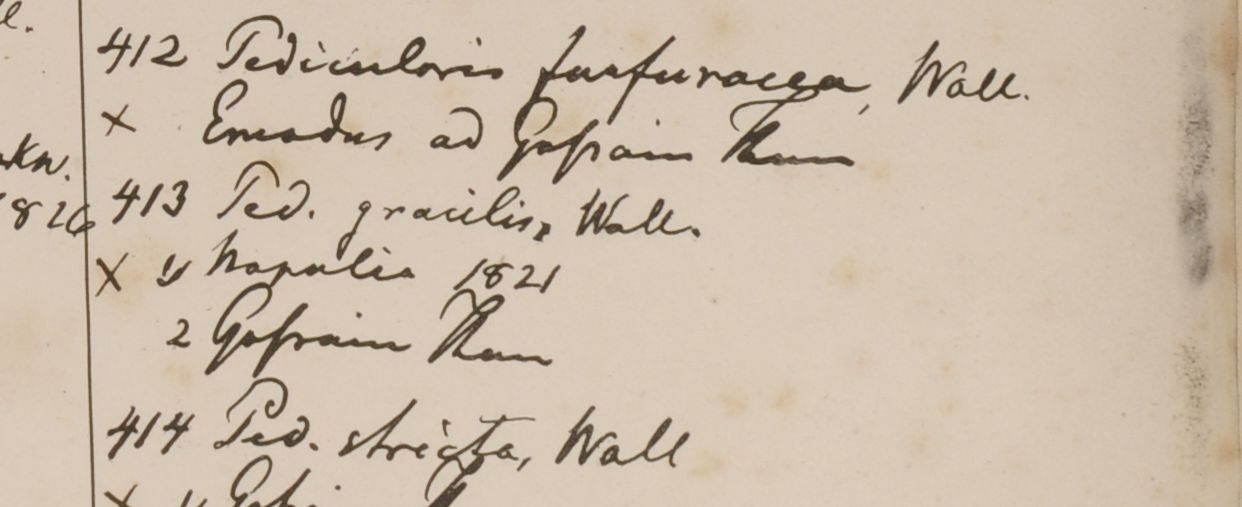 412 Pedicularis furfuracea, Wall.
x Emodus ad Gosrain Than
413 Ped. gracilis, Wall.
x 1/ Napalia 1821
2 Gosrain Than
414 Ped. stricta, Wall
x 1/
826